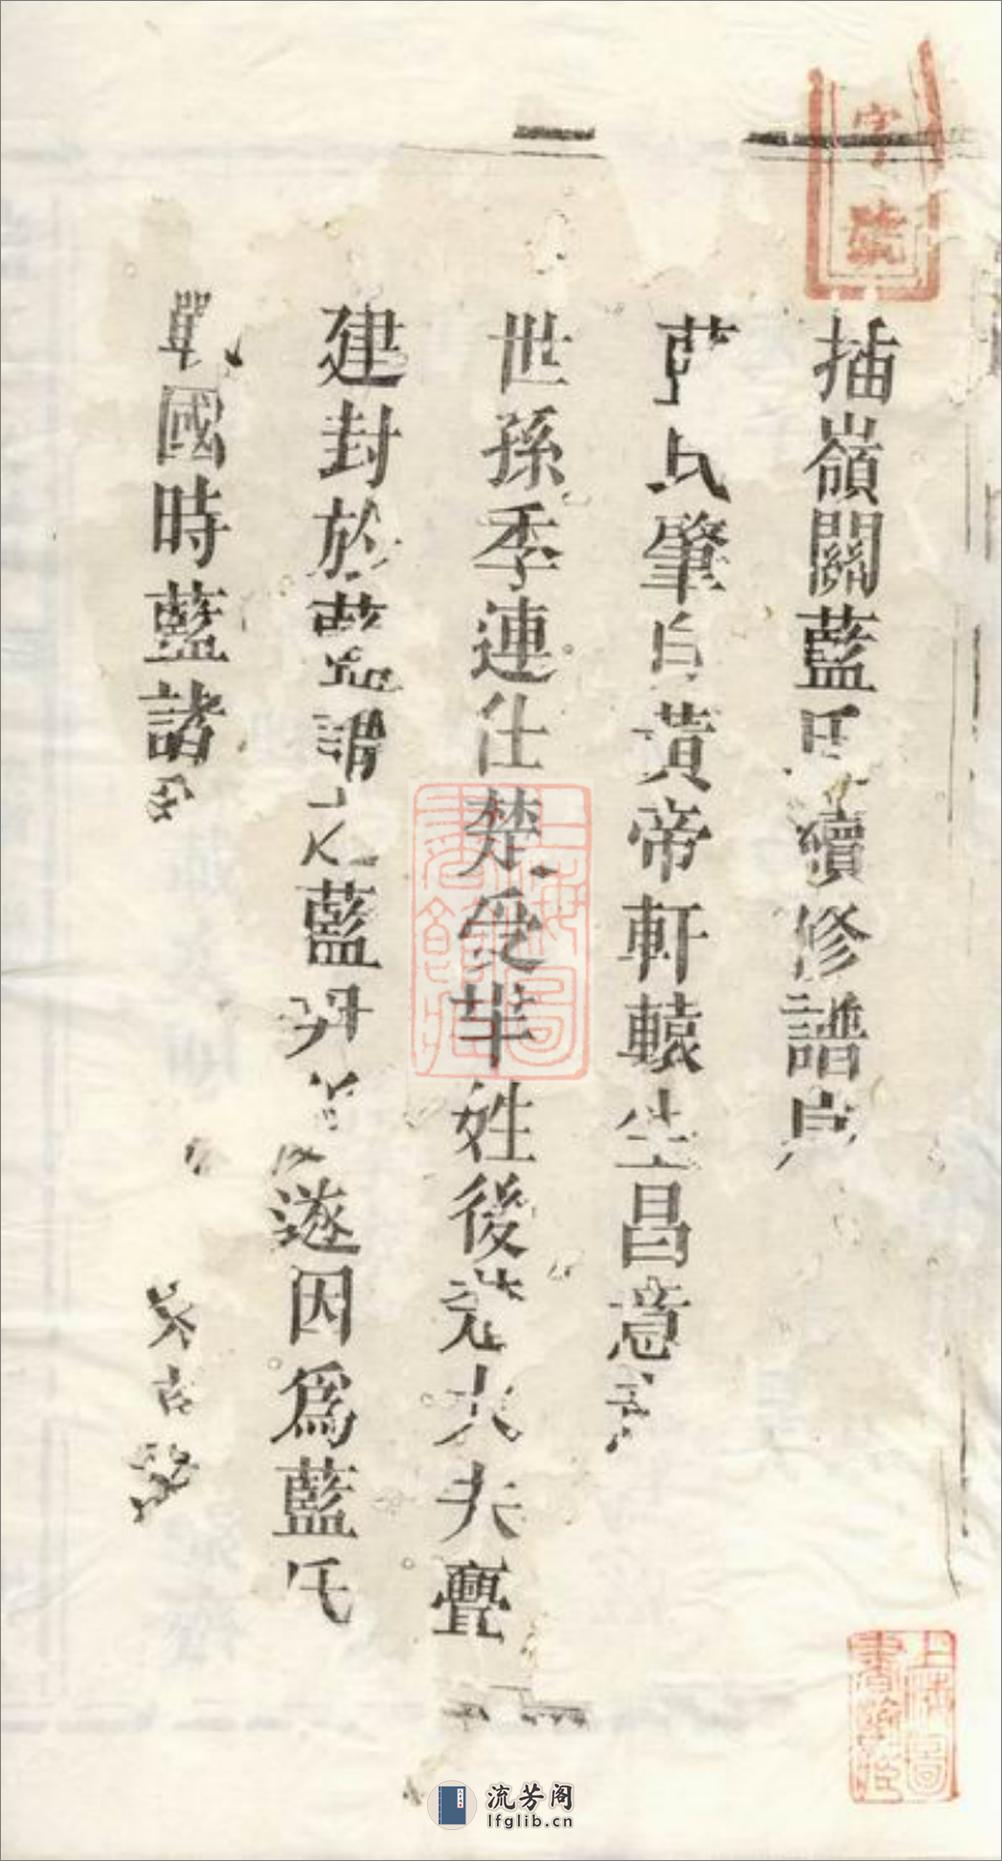 插嶺關藍氏續修譜序
藍氏肇自黃帝軒轅生昌意
世孫季連仕楚受芈姓後 大夫亹
建封於藍謂之藍尹 遂因爲藍氏
戰國時藍諸
字號
上海圖書館藏
上海圖書館藏
流芳阁
lfglib.cn